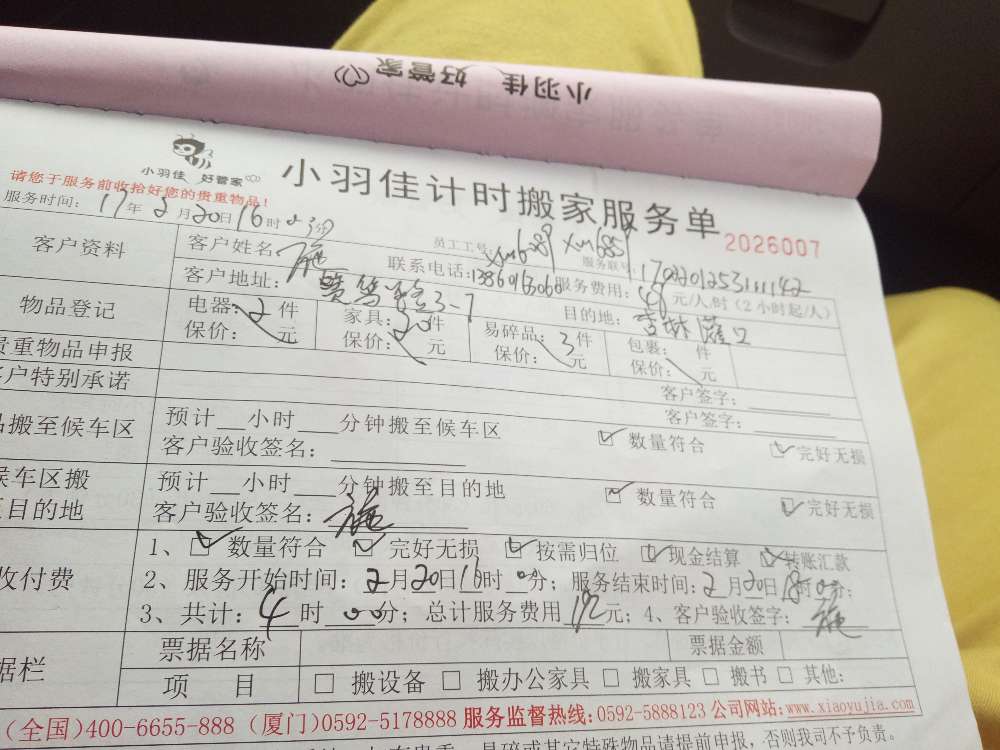 小羽佳 好管家
小羽佳 好管家
小羽佳计时搬家服务单
2026007
请您于服务前收拾好您的贵重物品!
服务时间: 17年2月20日16时 分
员工工号: xm6289 xm6859
服务联号: 170220125311142
客户资料
客户姓名: 施
联系电话:
服务费用: 48元/人.时(2小时起/人)
客户地址: 3-7
目的地: 杏林灌口
物品登记
电器: 2件
保价: 元
家具: 20件
保价: 元
易碎品: 3件
保价: 元
包裹: 件
保价: 元
贵重物品申报
客户签字:
户特别承诺
客户签字:
品搬至候车区
预计__小时___分钟搬至候车区
☑ 数量符合
☑ 完好无损
客户验收签名:
候车区搬
至目的地
预计__小时___分钟搬至目的地
☑ 数量符合
☑ 完好无损
客户验收签名: 施
收付费
1、☑ 数量符合 ☑ 完好无损 ☑ 按需归位 ☑ 现金结算 ☑ 转账汇款
2、服务开始时间: 2月20日16时00分; 服务结束时间: 2月20日18时00分;
3、共计: 4时00分; 总计服务费用192元; 4、客户验收签字: 施
据栏
票据名称
票据金额
项 目
□ 搬设备 □ 搬办公家具 □ 搬家具 □ 搬书 □ 其他:
(全国)400-6655-888 (厦门)0592-5178888 服务监督热线:0592-5888123 公司网站:www.xiaoyujia.com
易碎或其它特殊物品请提前申报,否则我司不予负责。